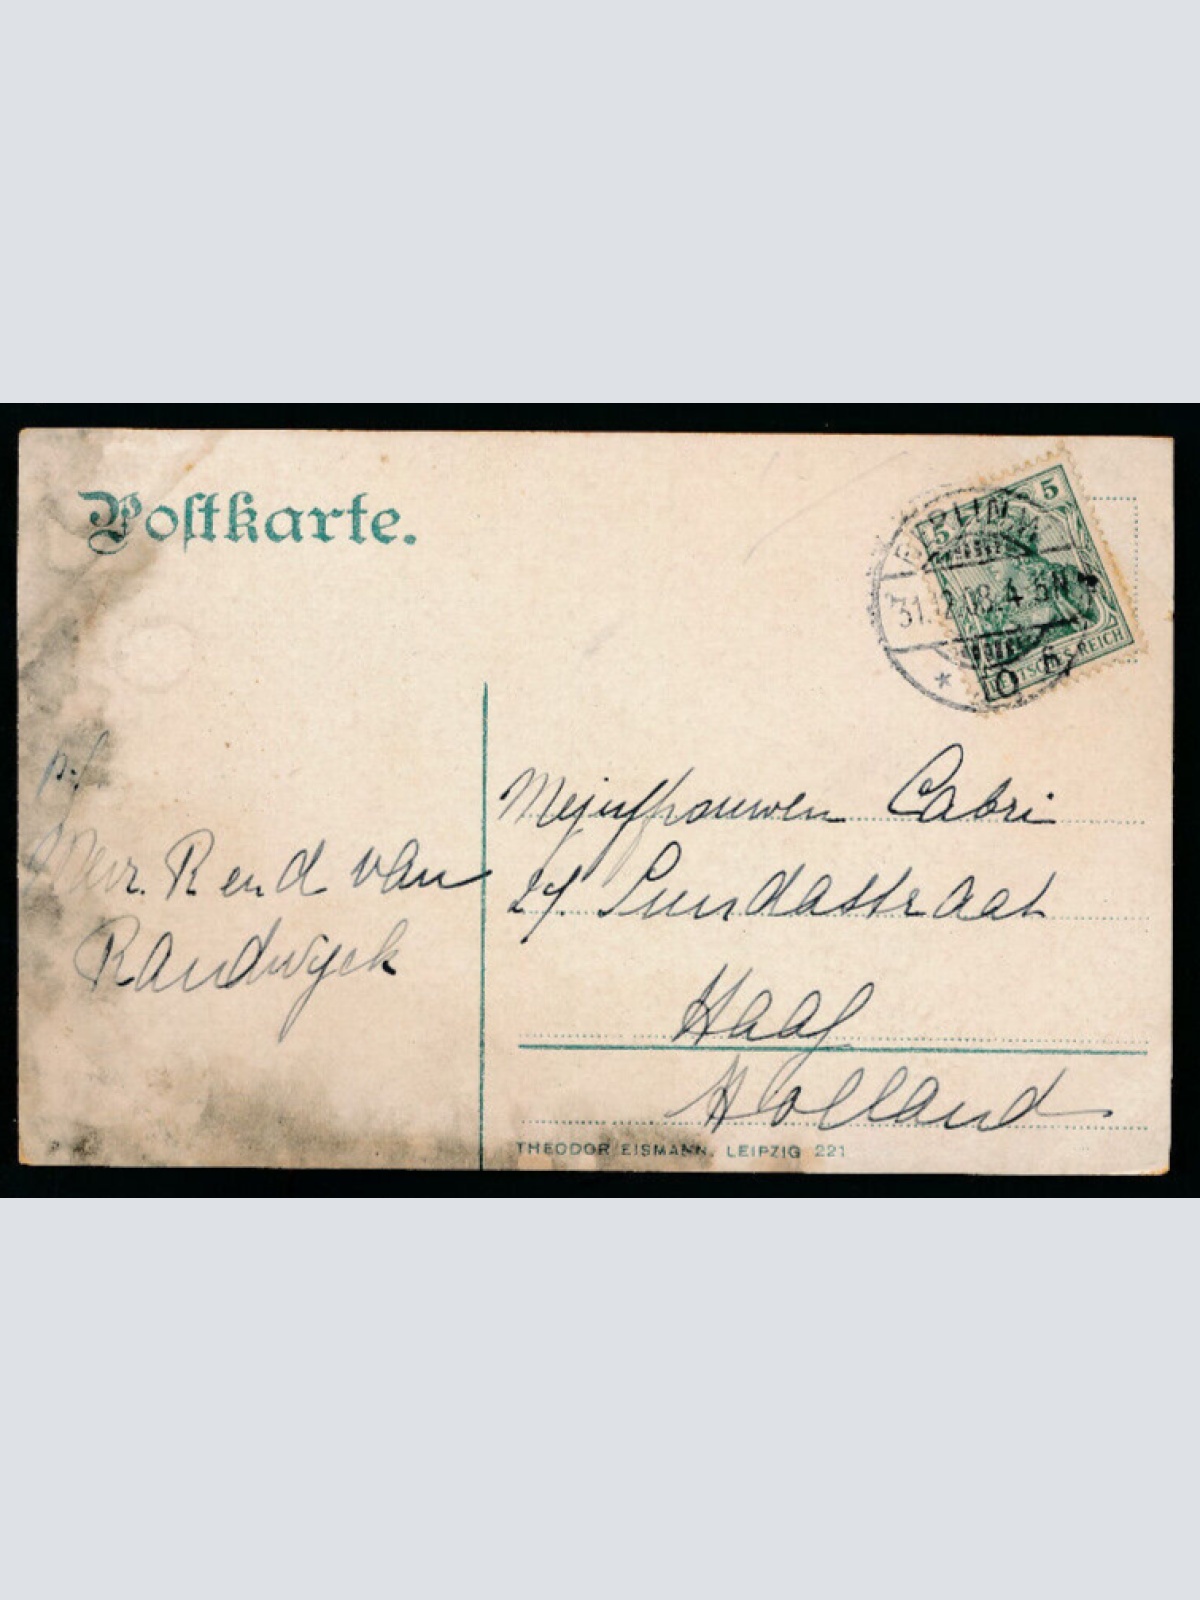 Postkarte.
BERLIN
31.12.08.4-5N
5
5
DEUTSCHES REICH
p.f.
Mevr. Rend van
Randwyck
Mejuffrouwen Cabri
Sundastraat
Haag
Holland
THEODOR EISMANN, LEIPZIG 221